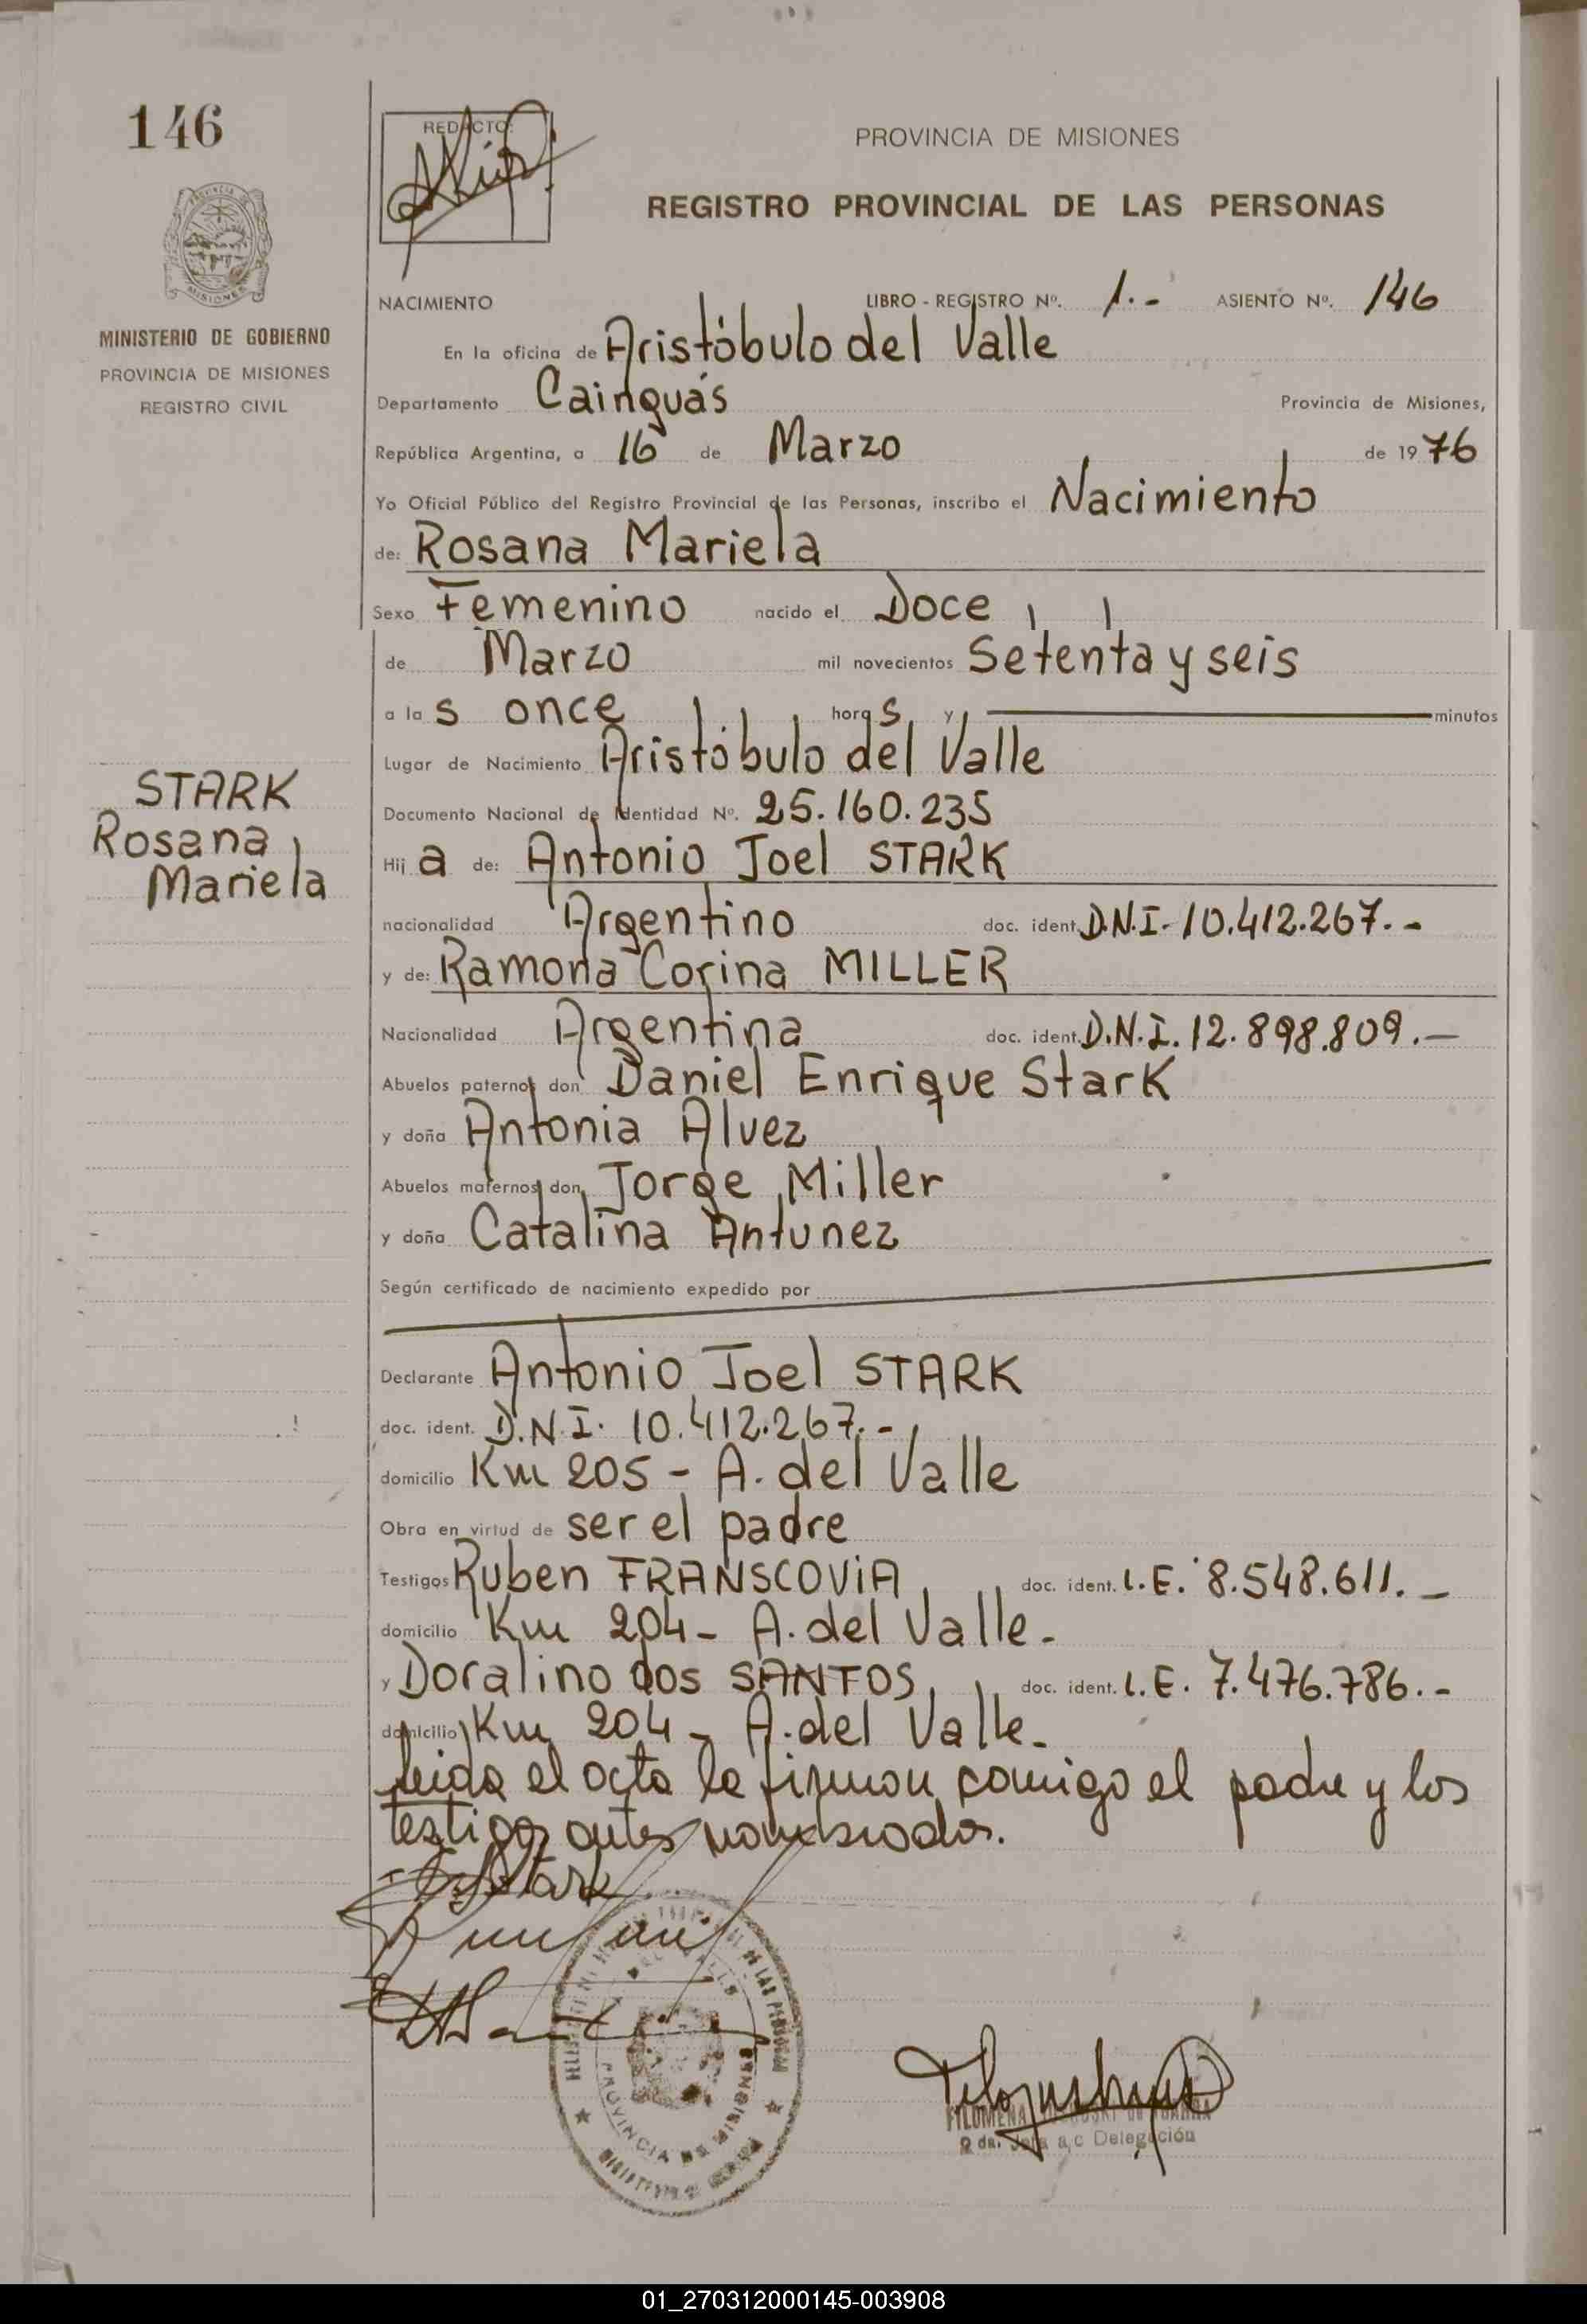 146
REDACTO:
PROVINCIA DE MISIONES
REGISTRO PROVINCIAL DE LAS PERSONAS
PROVINCIA
MISIONES
MINISTERIO DE GOBIERNO
PROVINCIA DE MISIONES
REGISTRO CIVIL
NACIMIENTO LIBRO - REGISTRO Nº. 1.- ASIENTO Nº. 146
En la oficina de Aristóbulo del Valle
Departamento Cainguás Provincia de Misiones,
República Argentina, a 16 de Marzo de 1976
Yo Oficial Público del Registro Provincial de las Personas, inscribo el Nacimiento
de: Rosana Mariela
Sexo Femenino nacido el Doce
de Marzo mil novecientos Setenta y seis
a las once horas y minutos
Lugar de Nacimiento Aristóbulo del Valle
STARK
Rosana
Mariela
Documento Nacional de Identidad Nº. 25.160.235
Hija de: Antonio Joel STARK
nacionalidad Argentino doc. ident. D.N.I- 10.412.267.-
y de: Ramona Corina MILLER
Nacionalidad Argentina doc. ident. D.N.I. 12.898.809.-
Abuelos paternos don Daniel Enrique Stark
y doña Antonia Alvez
Abuelos maternos don Jorge Miller
y doña Catalina Antunez
Según certificado de nacimiento expedido por
Declarante Antonio Joel STARK
doc. ident. D.N.I. 10.412.267.-
domicilio Km 205 - A. del Valle
Obra en virtud de ser el padre
Testigos Ruben FRANSCOViA doc. ident. L.E. 8.548.611.-
domicilio Km 204 - A. del Valle.
y Doralino dos SANTOS doc. ident. L.E. 7.476.786.-
domicilio Km 204 - A. del Valle.
leida el acta la firman comigo el padre y los
testigos antes nombrados.
Stark
DE LAS PERSONAS
PROVINCIA DE MISIONES
FILOMENA
2 da. Jefa a/c Delegación
01_270312000145-003908